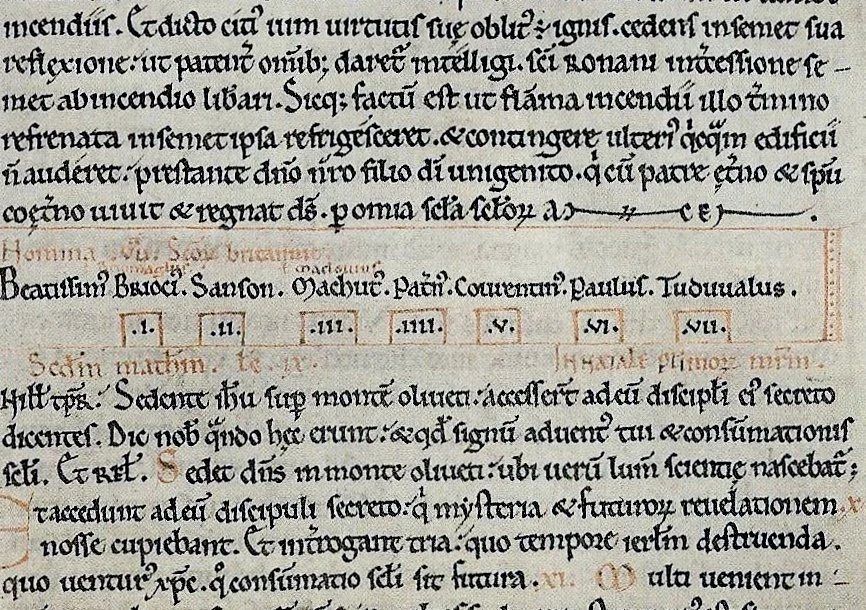 incendiis. Et dicto citi᾽ uim uirtutis suę oblit᷒ ÷ ignis. cedens in semet sua
reflexione: ut patent̄ omīb; daret̄ intelligi. sc̄i Ronani int̄cessione se–
met ab incendio lib̄ari. Sicq; factū est ut flāma incendii illo t̄mino
refrenata in semet ipsa refrigesceret. & contingere ulteri᷒ q̇cq̄m edificii
n̄ auderet: prestante dn̄o nr̄o filio dī unigenito. q̇ cū patre et̄no & spū
coęt̄no uiuit & regnat ds̄. ꝑ omia scl̄a scl̄oꝝ AM
Nomina .vii. Scōꝝ britannie
machlus maclouius
Beatissim᷒ Brioci᷒. Sanson. Machut᷒. Pat̄n᷒. Courentin᷒. Paulus. Tuduualus.
.I. .II. .III. .IIII. .V. .VI. .VII.
Scd̄m math̄m. łc. ix. In natale plimoꝝ mr̄m.
In ill̄ tp̄r̄: Sedente ih̄u sup̄ montē oliueti: accesser̄t ad eū discipl̄i ei᷒ secreto
dicentes. Dic nob̄ q̄ndo hęc erunt: & qd̄ signū aduent᷒ tui & consūmationis
scl̄i. Et rl̄. Sedet dn̄s in monte oliueti: ubi uerū lum̄ scientię nascebat᷒;
Et accedunt ad eū discipuli secreto: q̇ mysteria & futuroꝝ reuelationem
nosse cupiebant. Et int̄rogant tria: quo tempore ierl̄m destruenda.
quo uentur᷒ xp̄c. q̄ consūmatio scl̄i sit futura. xi. Multi uenient in –